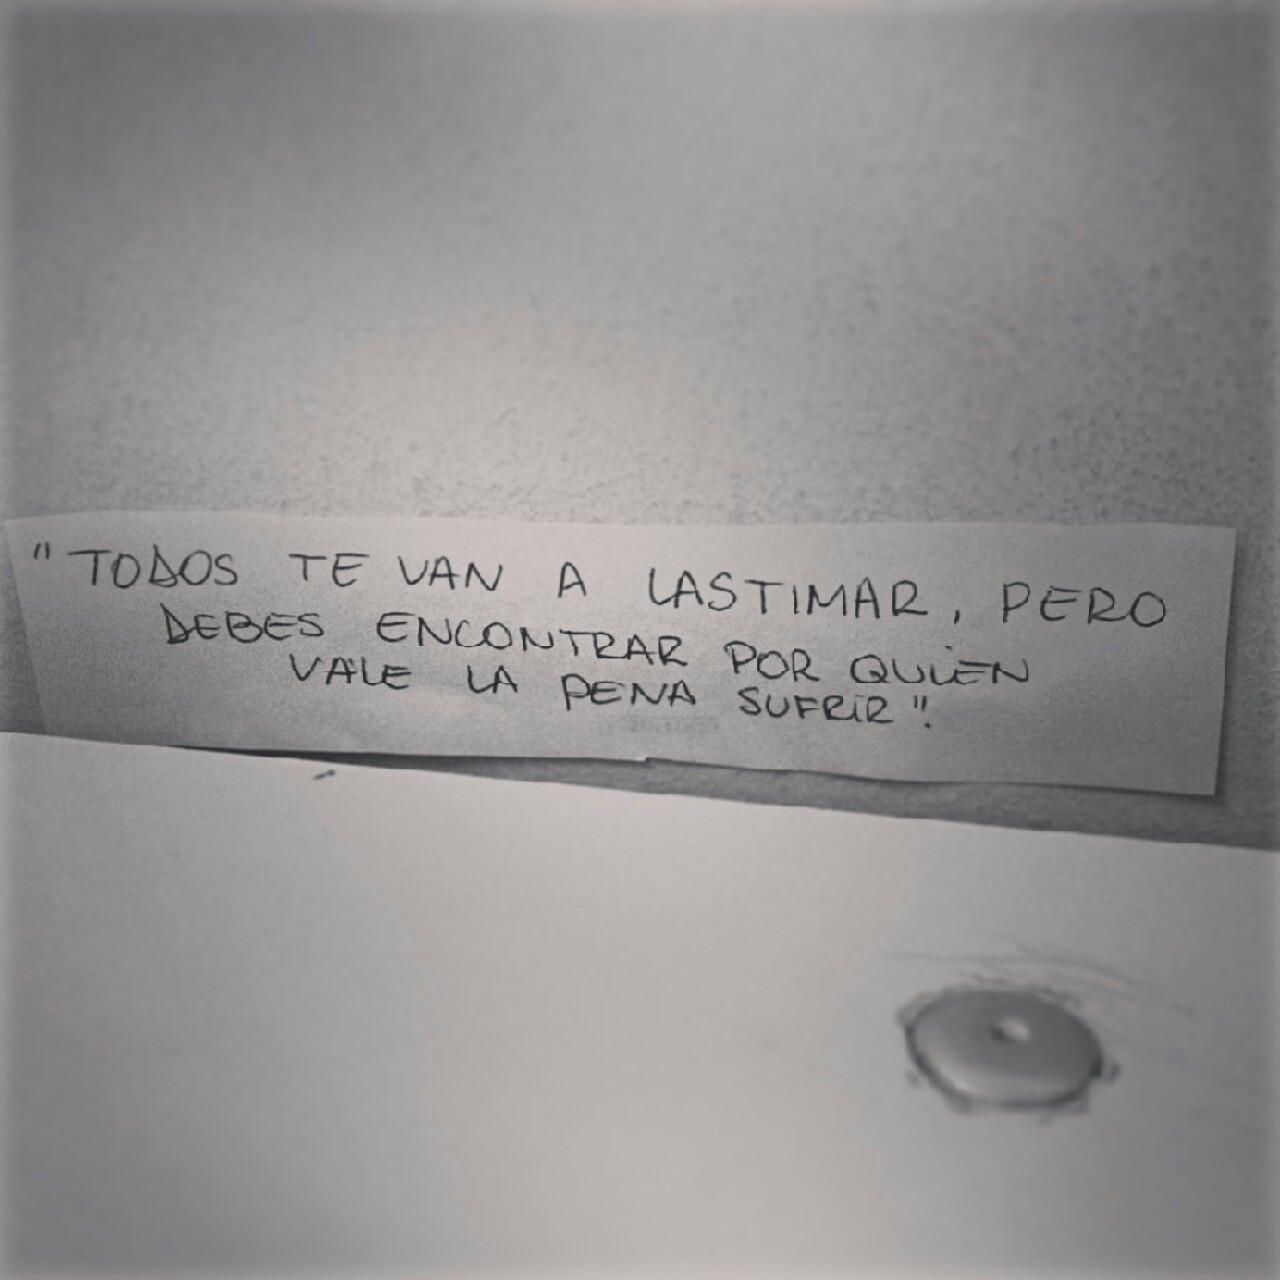 "TODOS TE VAN A LASTIMAR, PERO
DEBES ENCONTRAR POR QUIEN
VALE LA PENA SUFRIR".